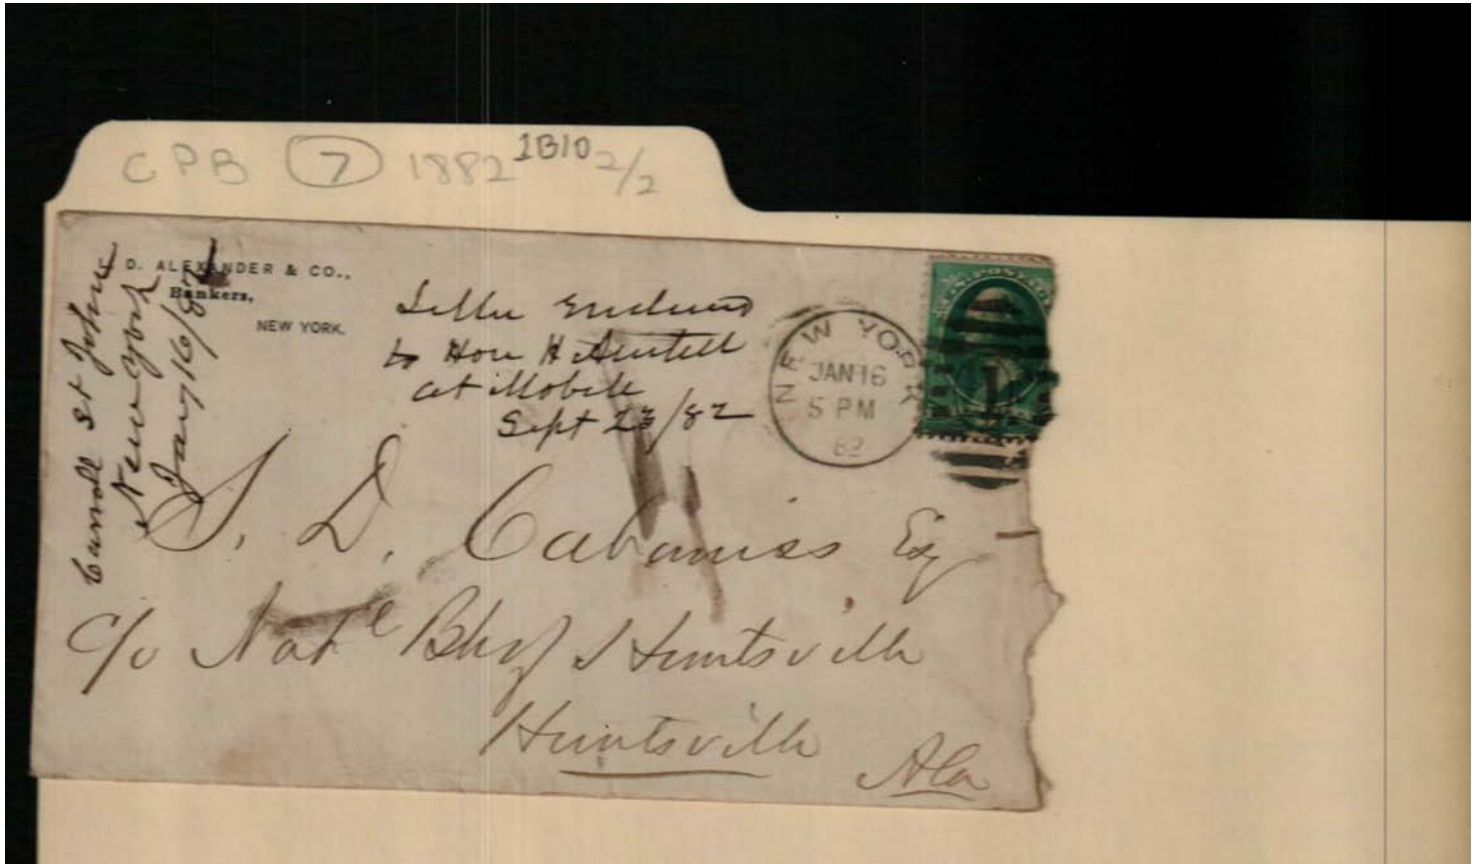 CPB 7 1882 1B10 2/2
D. ALEXANDER & CO.,
Bankers,
NEW YORK.
Carroll St John
New York
Jany 16/82
to Hon H
at Mobile
Sept 23/82
NEW YORK
JAN 16
5 PM
82
1
S. D. Cabaniss Esq
c/o Natl Bk of Huntsville
Huntsville
Ala